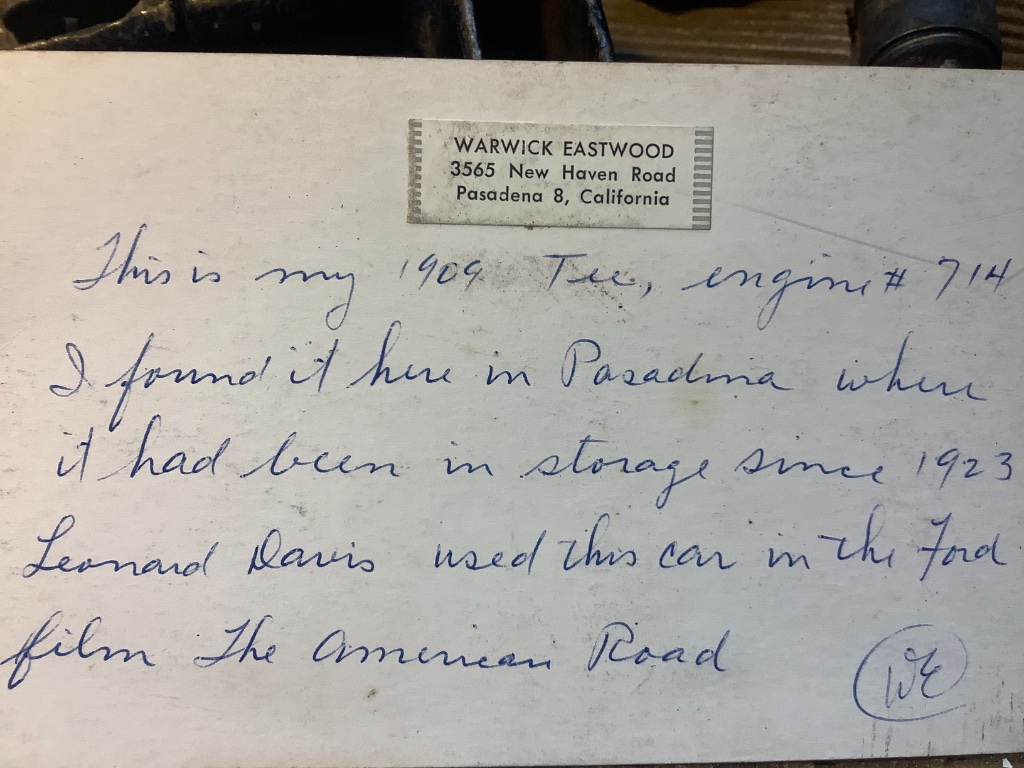 WARWICK EASTWOOD
3565 New Haven Road
Pasadena 8, California
This is my 1909 Tee, engine # 714
I found it here in Pasadena where
it had been in storage since 1923
Leonard Davis used this car in the Ford
film The American Road
WE